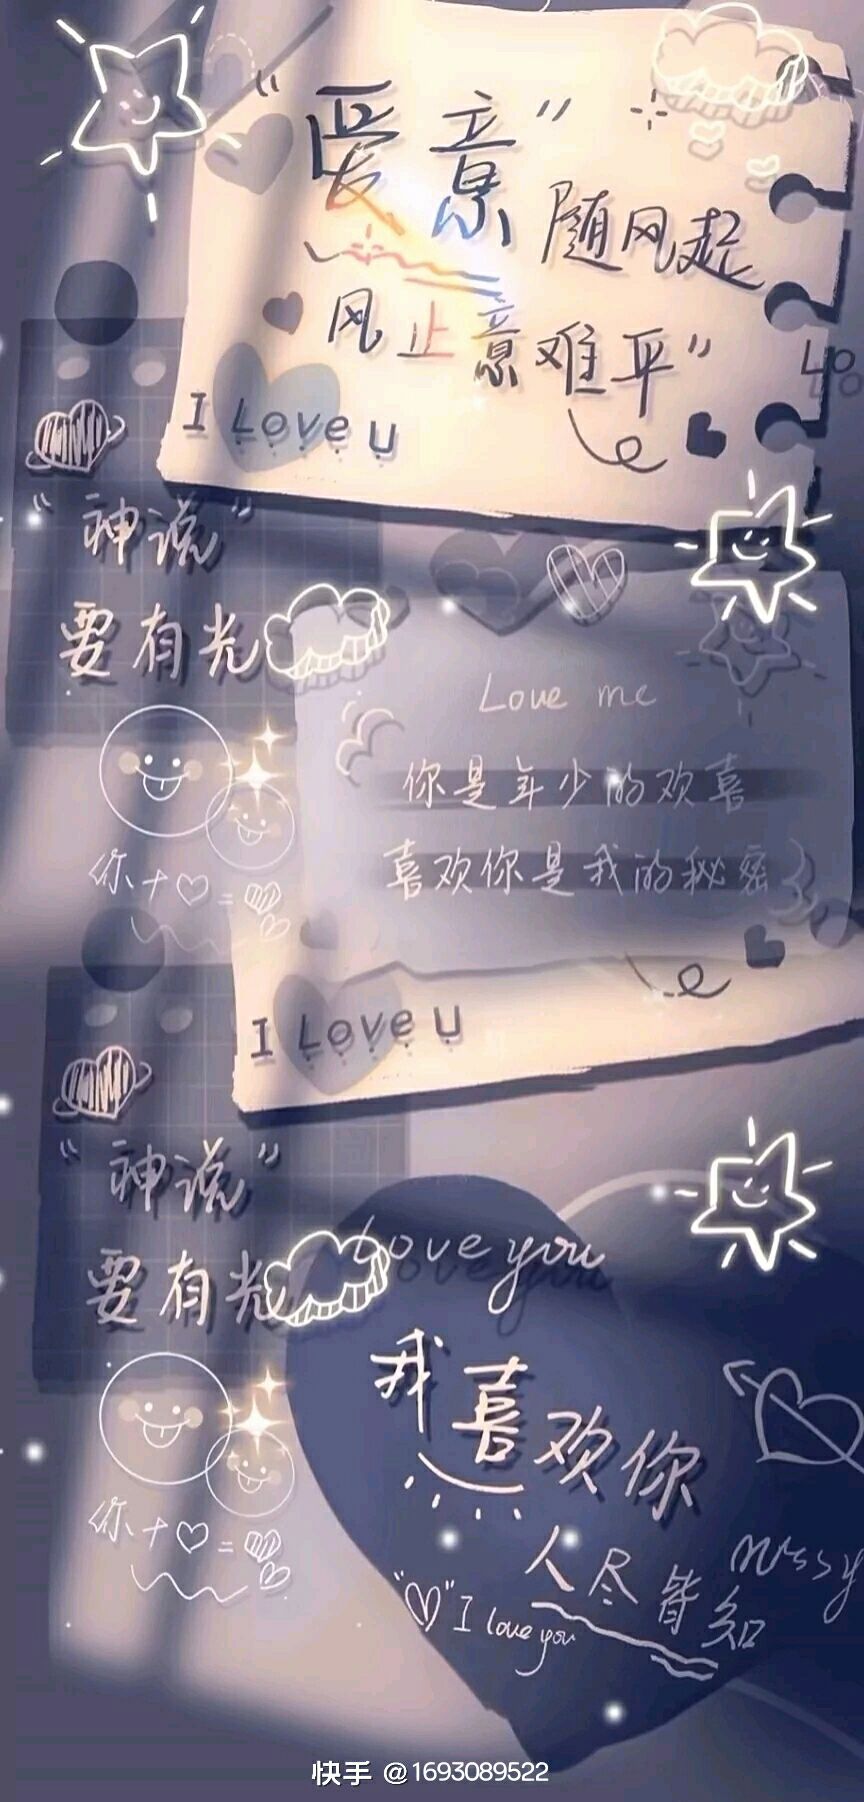 “爱意”随风起
风止意难平”
I Love u
“神说”
要有光
Love me
你是年少的欢喜
喜欢你是我的秘密
你+♡=
I Love u
“神说”
要有光
Love you
我喜欢你
人尽皆知
“♡”I love you
你+♡=
快手 @1693089522